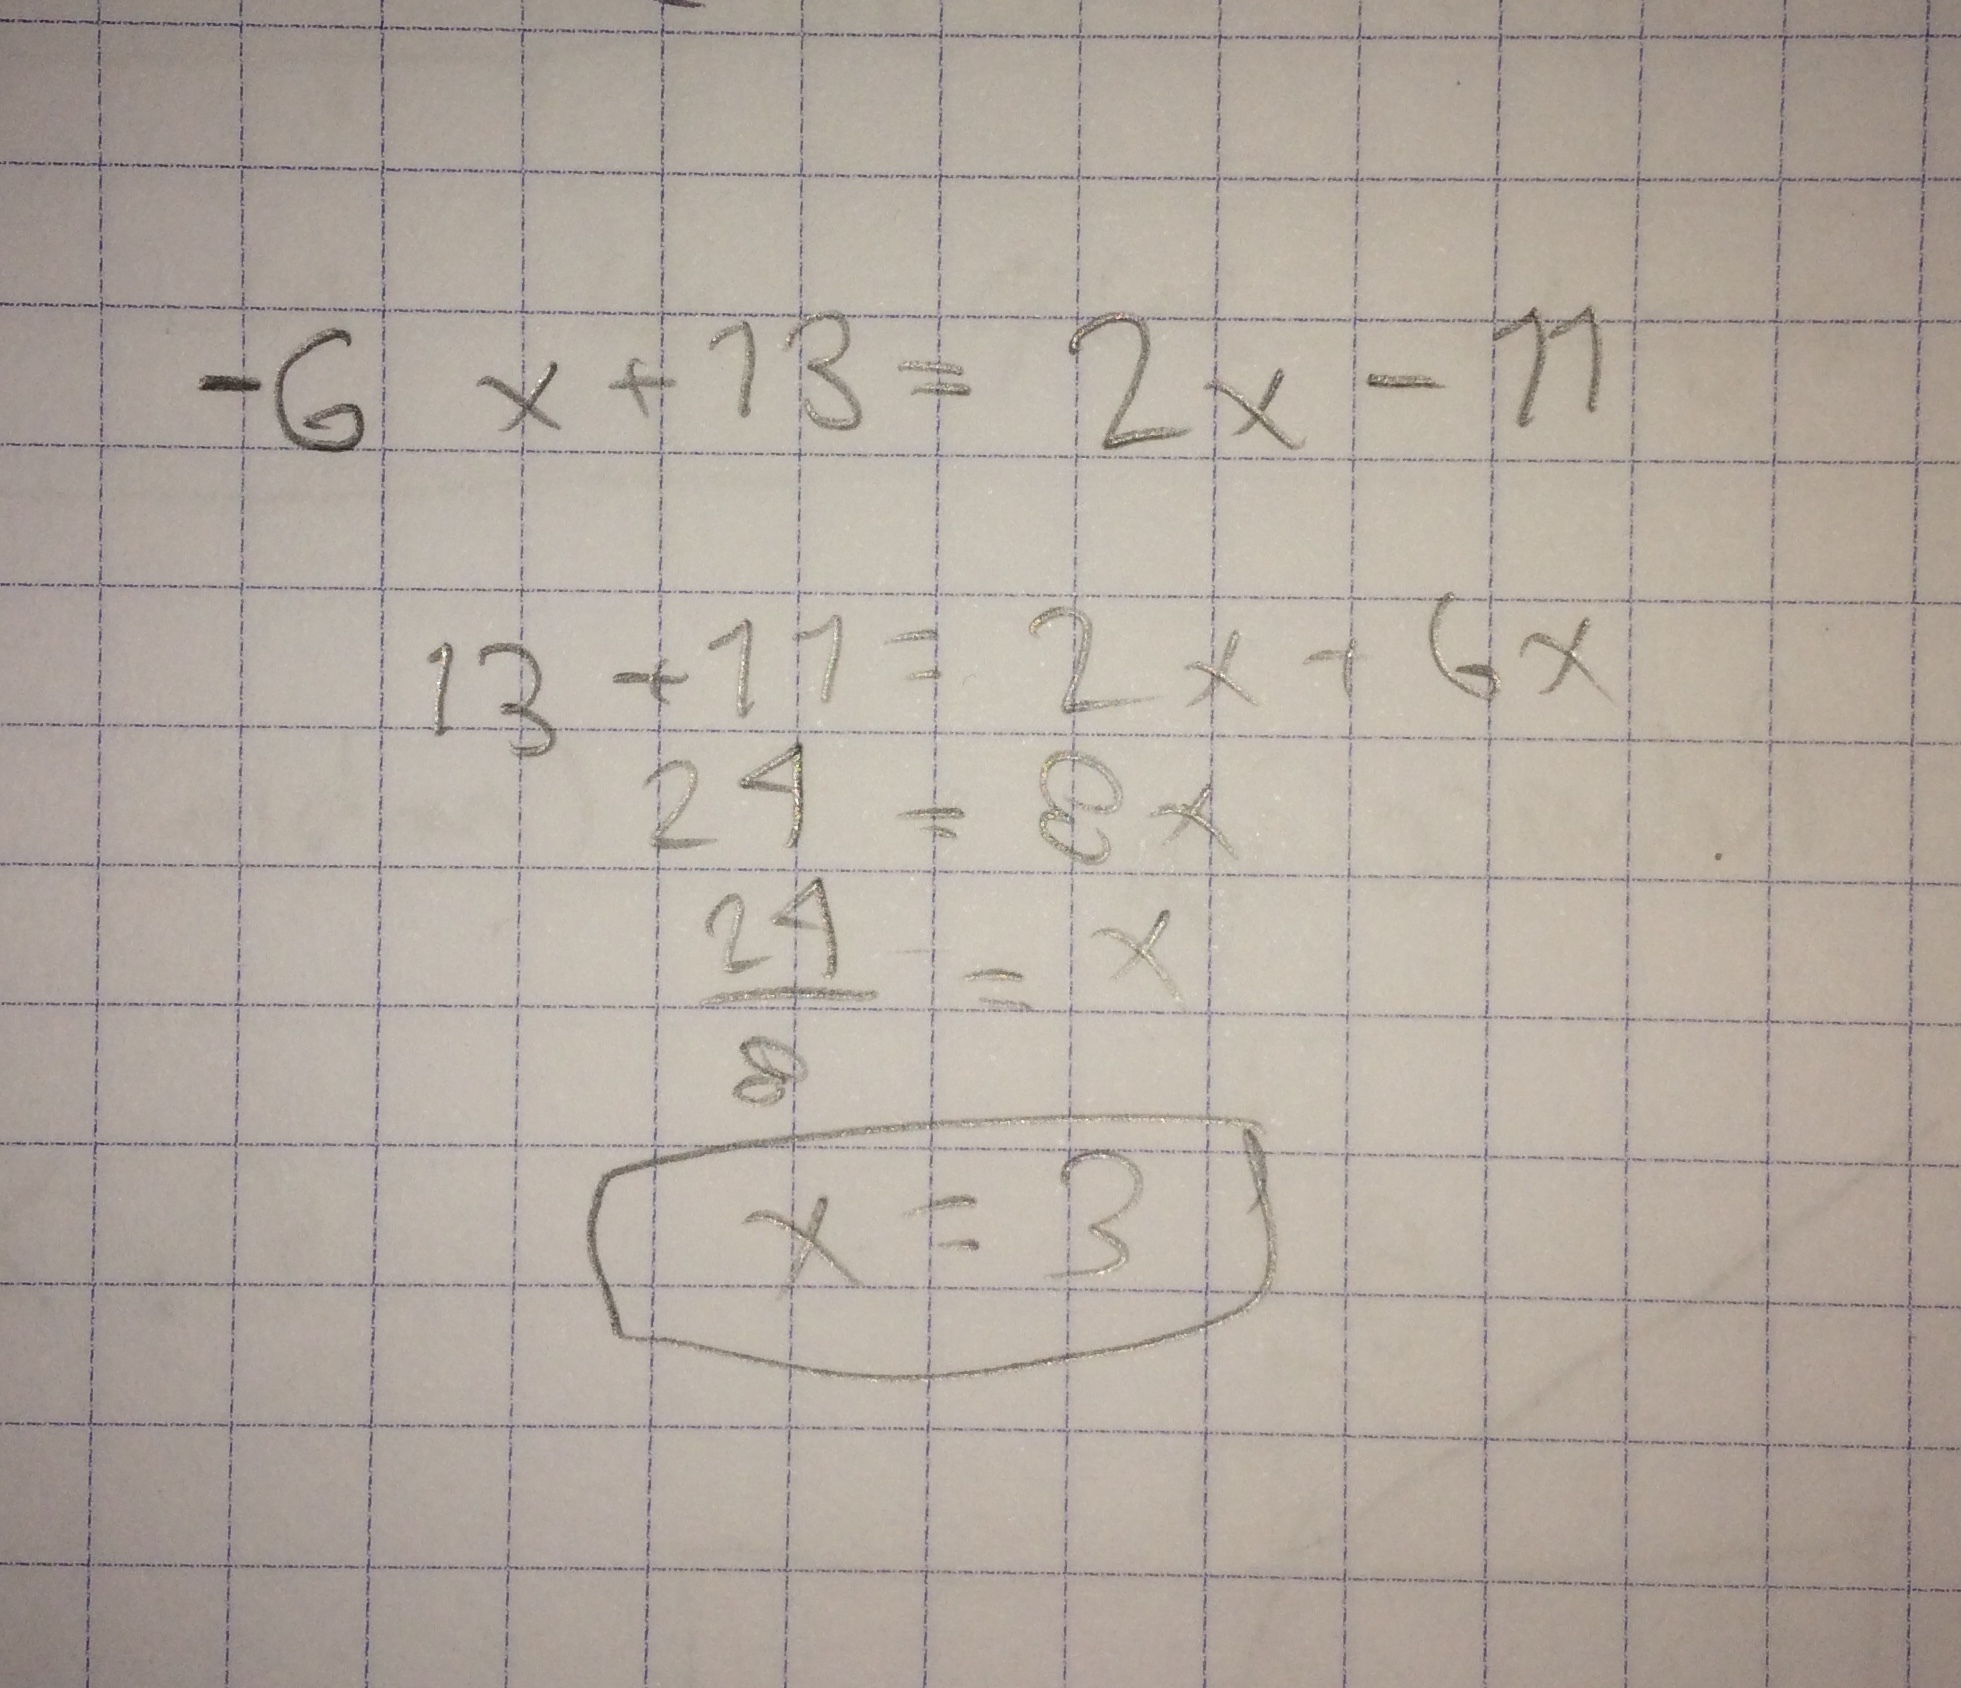 -6 x + 13 = 2x - 11
13 + 11 = 2x + 6x
24 = 8x
24
— = x
8
x = 3